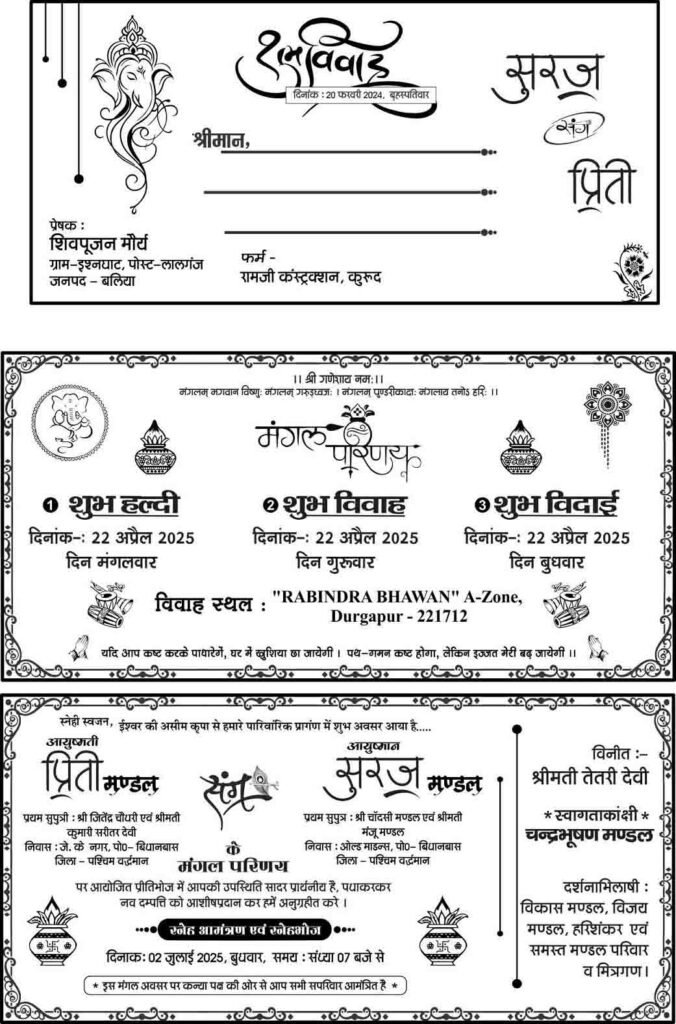 शुभ विवाह
दिनांक : 20 फरवरी 2024, बृहस्पतिवार
सुरज
संग
प्रिती
श्रीमान,
प्रेषक :
शिवपूजन मौर्य
ग्राम-इश्नघाट, पोस्ट-लालगंज
जनपद - बलिया
फर्म -
रामजी कंस्ट्रक्शन, कुरुद
।। श्री गणेशाय नमः।।
मंगलम् भगवान विष्णुः मंगलम् गरुड़ध्वजः । मंगलम् पुण्डरीकाक्षः मंगलाय तनोऽ हरिः ।।
मंगल परिणय
1 शुभ हल्दी
दिनांक-: 22 अप्रैल 2025
दिन मंगलवार
2 शुभ विवाह
दिनांक-: 22 अप्रैल 2025
दिन गुरूवार
3 शुभ विदाई
दिनांक-: 22 अप्रैल 2025
दिन बुधवार
विवाह स्थल : "RABINDRA BHAWAN" A-Zone,
Durgapur - 221712
यदि आप कष्ट करके पाधारेगें, घर में खुशिया छा जायेगी । पथ-गमन कष्ट होगा, लेकिन इज्जत मेरी बढ़ जायेगी ।।
स्नेही स्वजन, ईश्वर की असीम कृपा से हमारे पारिवारिक प्रागंण में शुभ अवसर आया है.....
आयुष्मती
प्रिती मण्डल
प्रथम सुपुत्री : श्री जितेंद्र चौधरी एवं श्रीमती
कुमारी सरीतर देवी
निवास : जे. के नगर, पो०- बिधानबास
जिला - पश्चिम वर्द्धमान
संग
आयुष्मान
सुरज मण्डल
प्रथम सुपुत्र : श्री चाँदसी मण्डल एवं श्रीमती
मंजू मण्डल
निवास : ओल्ड माडन्स, पो०- बिधानबास
जिला - पश्चिम वर्द्धमान
के
मंगल परिणय
पर आयोजित प्रीतिभोज में आपकी उपस्थिति सादर प्रार्थनीय है, पधाकरकर
नव दम्पत्ति को आशीषप्रदान कर हमें अनुग्रहीत करे ।
स्नेह आमंत्रण एवं स्नेहभोज
दिनाकः 02 जुलाई 2025, बुधवार, समय : संध्या 07 बजे से
* इस मंगल अवसर पर कन्या पक्ष की ओर से आप सभी सपरिवार आमंत्रित है *
विनीत :-
श्रीमती तेतरी देवी
*स्वागताकांक्षी*
चन्द्रभूषण मण्डल
दर्शनाभिलाषी :
विकास मण्डल, विजय
मण्डल, हरिशंकर एवं
समस्त मण्डल परिवार
व मित्रगण।